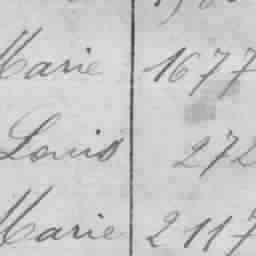 Marie 1677
Louis 272
Marie 2117